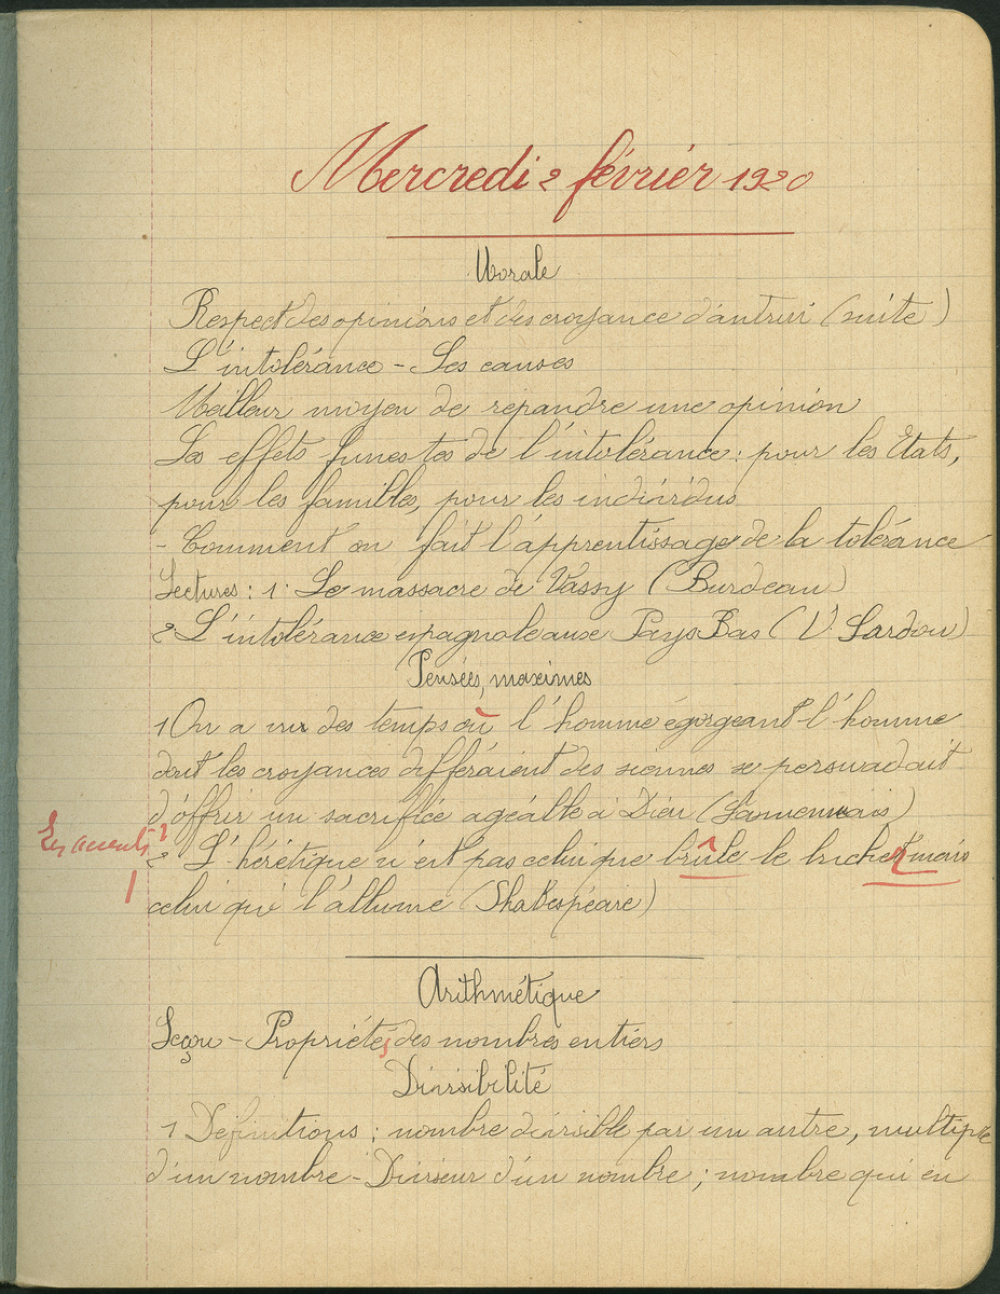 Mercredi 2 février 1920
Morale
Respect des opinions et des croyance d'autrui (suite)
L'intolérance - Ses causes
Meilleur moyen de repandre une opinion
Les effets funestes de l'intolérance : pour les Etats,
pour les familles, pour les individus
- Comment on fait l'apprentissage de la tolérance
Lectures : 1. Le massacre de Vassy (Burdeau)
2 L'intolérance espagnole aux Pays Bas (V. Sardou)
Pensées, maximes
1 On a vu des temps où l'homme égorgeant l'homme
dont les croyances différaient des siennes se persuadait
d'offrir un sacrifice agéable à Dieu (Lamennais)
Les accents !
2 L'hérétique n'est pas celui que brûle le bucher mais
celui qui l'allume (Shakespeare)
Arithmétique
Leçon - Propriétés des nombres entiers
Divisibilité
1 Définitions : nombre divisible par un autre, multiple
d'un nombre - Diviseur d'un nombre ; nombre qui en